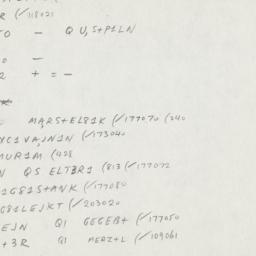 R (/118021
TO - QU,S+P1LN
-
2 + = -
MARS+EL81K (/177070 (240
YC1VA,N1N (/173040
MUR1M (428
N QS ELT3R1 (813 (/177072
1G81S+ANK (/177080
G81LEJKT (/203020
EJN Q1 GEGEB+ (/177050
+3R Q1 MERZ+L (/109061